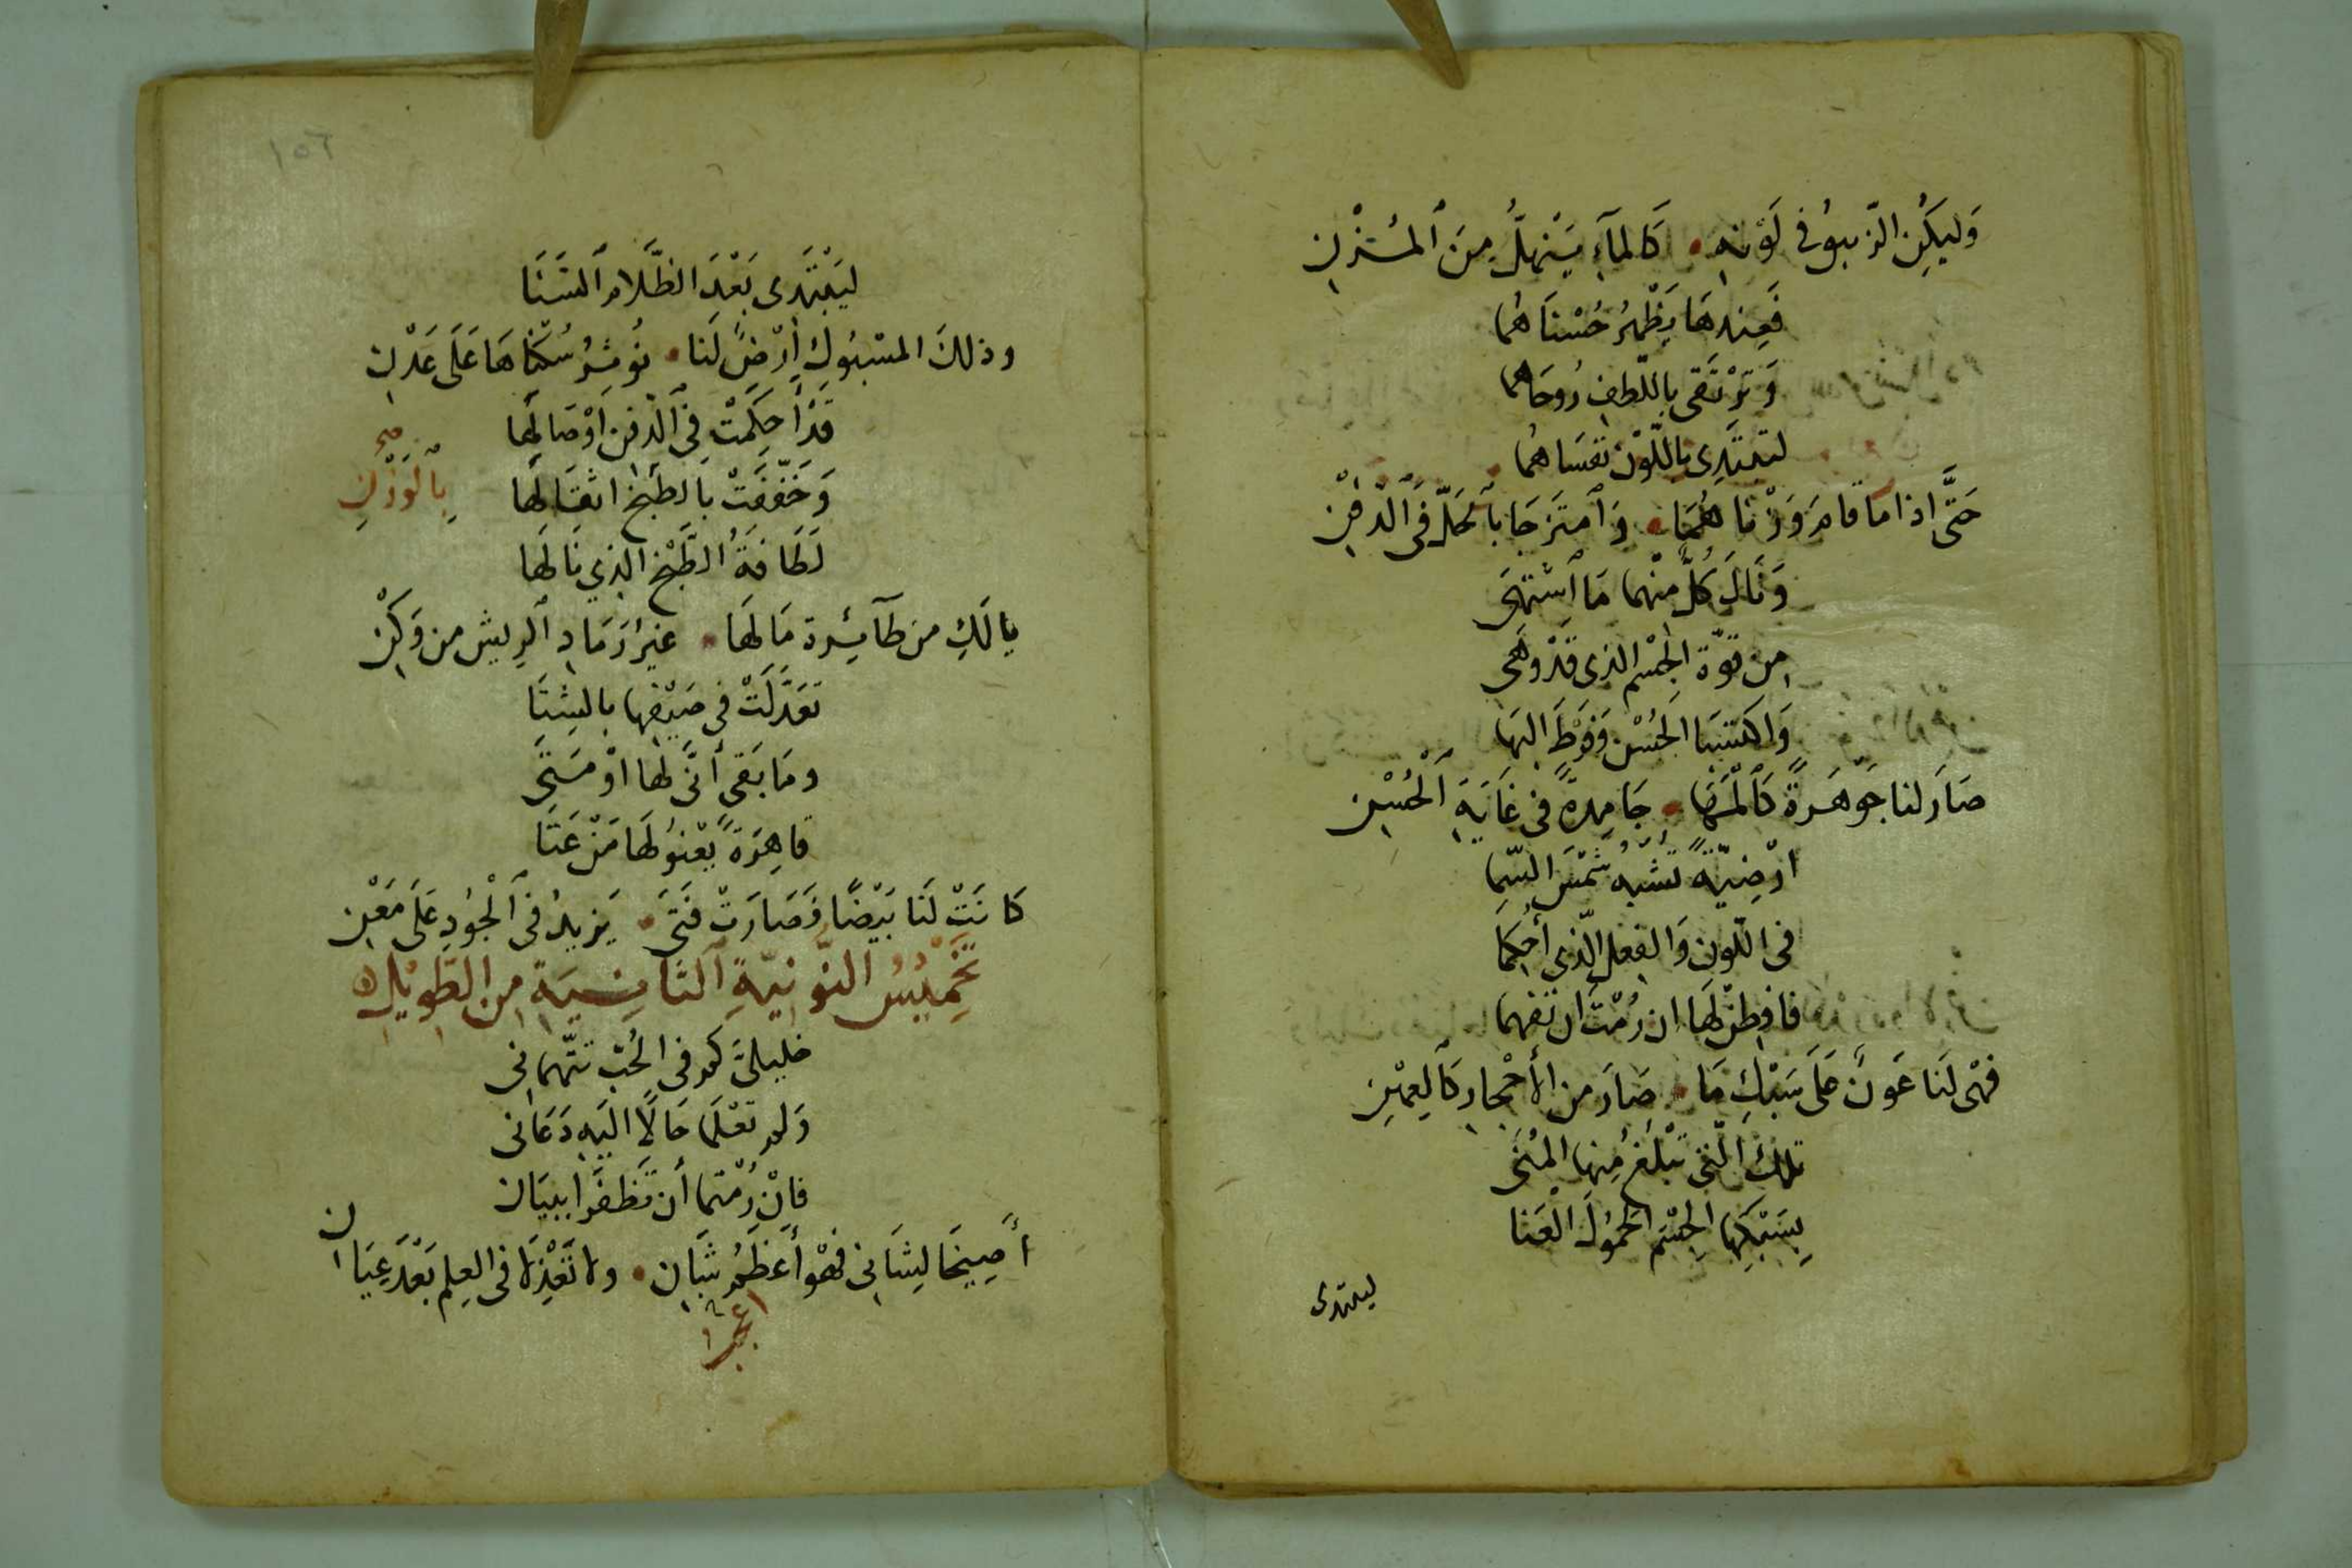 وَليَكُنِ الزّيبقُ في لَوْنِهِ • كَالمآءِ يَنْهلُّ مِنَ ٱلمُزْنِ
فَعِندهَا يَظْهرُ حُسْنَاهُما
وَتَرْتَقى باللّطفِ رُوحَاهما
لتهتَدِى باللّوْن نفسَاهُما
حَتَّى اذا مَا قامَ وَزْناهُمَا • وَٱمتَزجَا بٱلحَلّ فى ٱلدّفْنِ
وَنَالَ كُلٌّ مِنْهما مَا ٱشتَهَى
مِن قوّة الجِسْم الذى قدْ وَهَى
وَاكتسَبَا الحُسْن وَفَرْطَ البَها
صَارَ لنا جَوْهَرةً كَٱلمَهَا • جَامِدةً فى غَايَةِ ٱلْحُسْنِ
أرْضِيّةً تُشْبهُ شَمْسَ السّما
فى اللّون وَالفعل الّذي أُحكِمَا
فافطنْ لَها ان رُمْتَ ان تفهما
فهْى لَنا عَونٌ عَلَى سَبْكِ مَا • صَارَ من الأحْجارِ كَٱلعِهْنِ
تلك الّتى تبْلغُ منها المُنَى
بِسَبْكِها الجِسْم الحَمُولَ الْعَنا
ليهتدى
١٥٦
ليَهْتَدِى بَعْدَ الظَّلَامِ ٱلسَنَا
وذلكَ المسْبُوك أرْضٌ لَنا • نُوثِرُ سُكنَاهَا عَلَى عَدْنِ
قَدْ أحكِمَتْ فِى ٱلدّفن أوْصَالهَا
وَخَفّفَتْ بالطَبْخ اثقَالَهَا
بِٱلْوَزْنِ صح
لَطَافَةُ الطَّبْخ الذي نَالهَا
يالَكِ من طَآئِرة مَا لَهَا • غيرُ رَمَادِ ٱلرِيش من وَكْنِ
تعَدَّلَتْ فى صَيْفِها بالشِتَا
ومَا بَقى أنَّى لها اوْ مَتَى
قاهِرَةً يعْنُو لَهَا مَنْ عَتَا
كانَتْ لَنَا بَيْضًا وَصَارَتْ فَتىً • يَزيدُ فى ٱلْجُودِ عَلَى مَعْنِ
تَخْمِيْسُ النّونيّةِ ٱلثانِيَةِ مِنَ الطّوِيْلِ
خليلىَّ كم فى الحُبّ تتّهمانِى
وَلم تعْلَما حَالاً اليَهِ دَعَانى
فانْ رُمْتما أن تَظفَرا ببيَان
أَصِيخَا لِشَانِى فهْوَ أعَظمُ شَانِ • ولا تَعْذِلا فى العِلم بَعْدَ عِيَانِ
اعجب